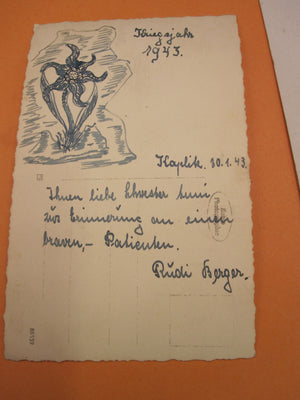 Kriegsjahr
1943.
Kaplitz. 30.1.43.
Ihnen liebe Schwester
zur Erinnerung an einen
braven,- Patienten.
Rudi Berger.